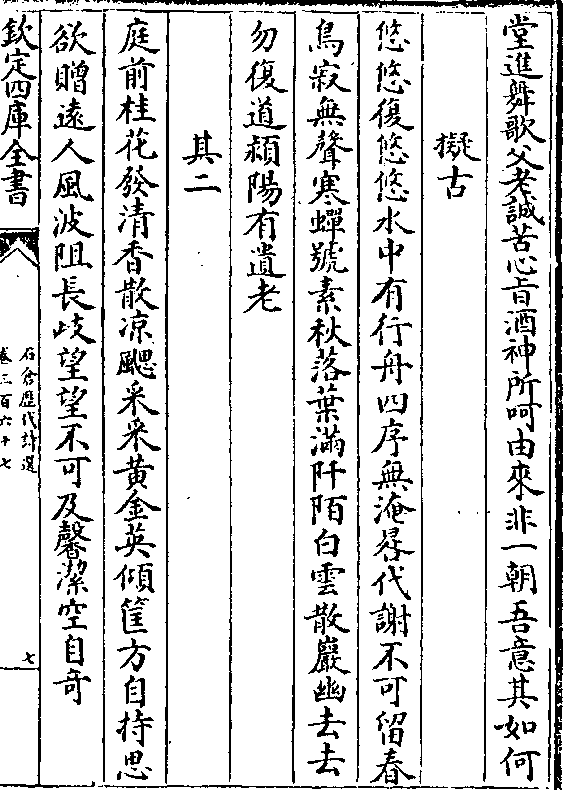 堂進舞歌父老誠苦心旨酒神所呵由來非一朝吾意其如何
擬古
悠悠復悠悠水中有行舟四序無淹晷代謝不可留春
鳥寂無聲寒蟬號素秋落葉滿阡陌白雲散巖幽去去
勿復道潁陽有遺老
其二
庭前桂花發清香散凉颸采采黃金英傾筐方自持思
欲贈遠人風波阻長歧望望不可及馨潔空自奇
欽定四庫全書
石倉歷代詩選
卷三百六十七
七